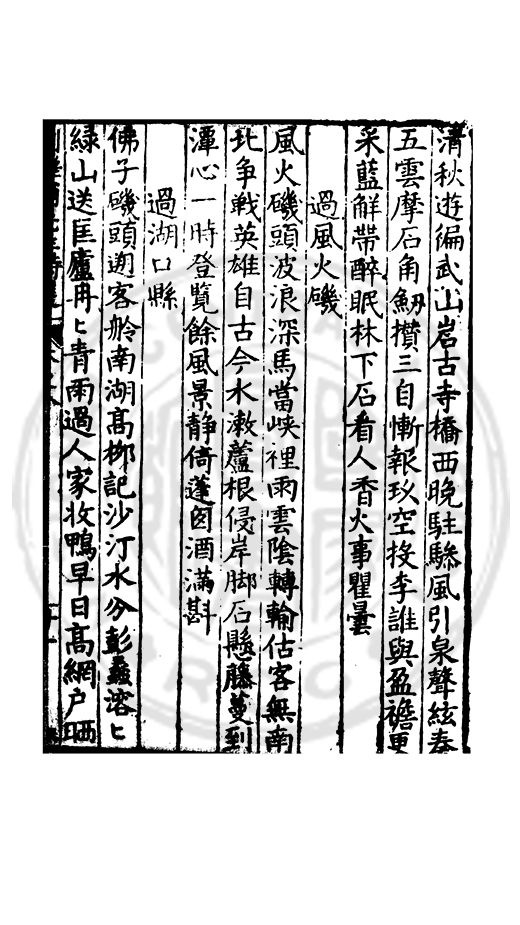 清秋遊徧武山岩古寺橋西晚駐驂風引泉聲絃奏
五雲摩石角劒攢三自慚報玖空投李誰與盈襜更
采藍解帶醉眠林下石看人香火事瞿曇
過風火磯
風火磯頭波浪深馬當峽裡雨雲陰轉輪估客無南
北爭戰英雄自古今水潄蘆根侵岸脚石懸藤蔓到
潭心一時登覽餘風景靜倚蓬囪酒滿斟
過湖口縣
佛子磯頭迎客舲南湖高栁記沙汀水分彭蠡溶〻
綠山送匡廬冉〻青雨過人家收鴨早日高網户晒